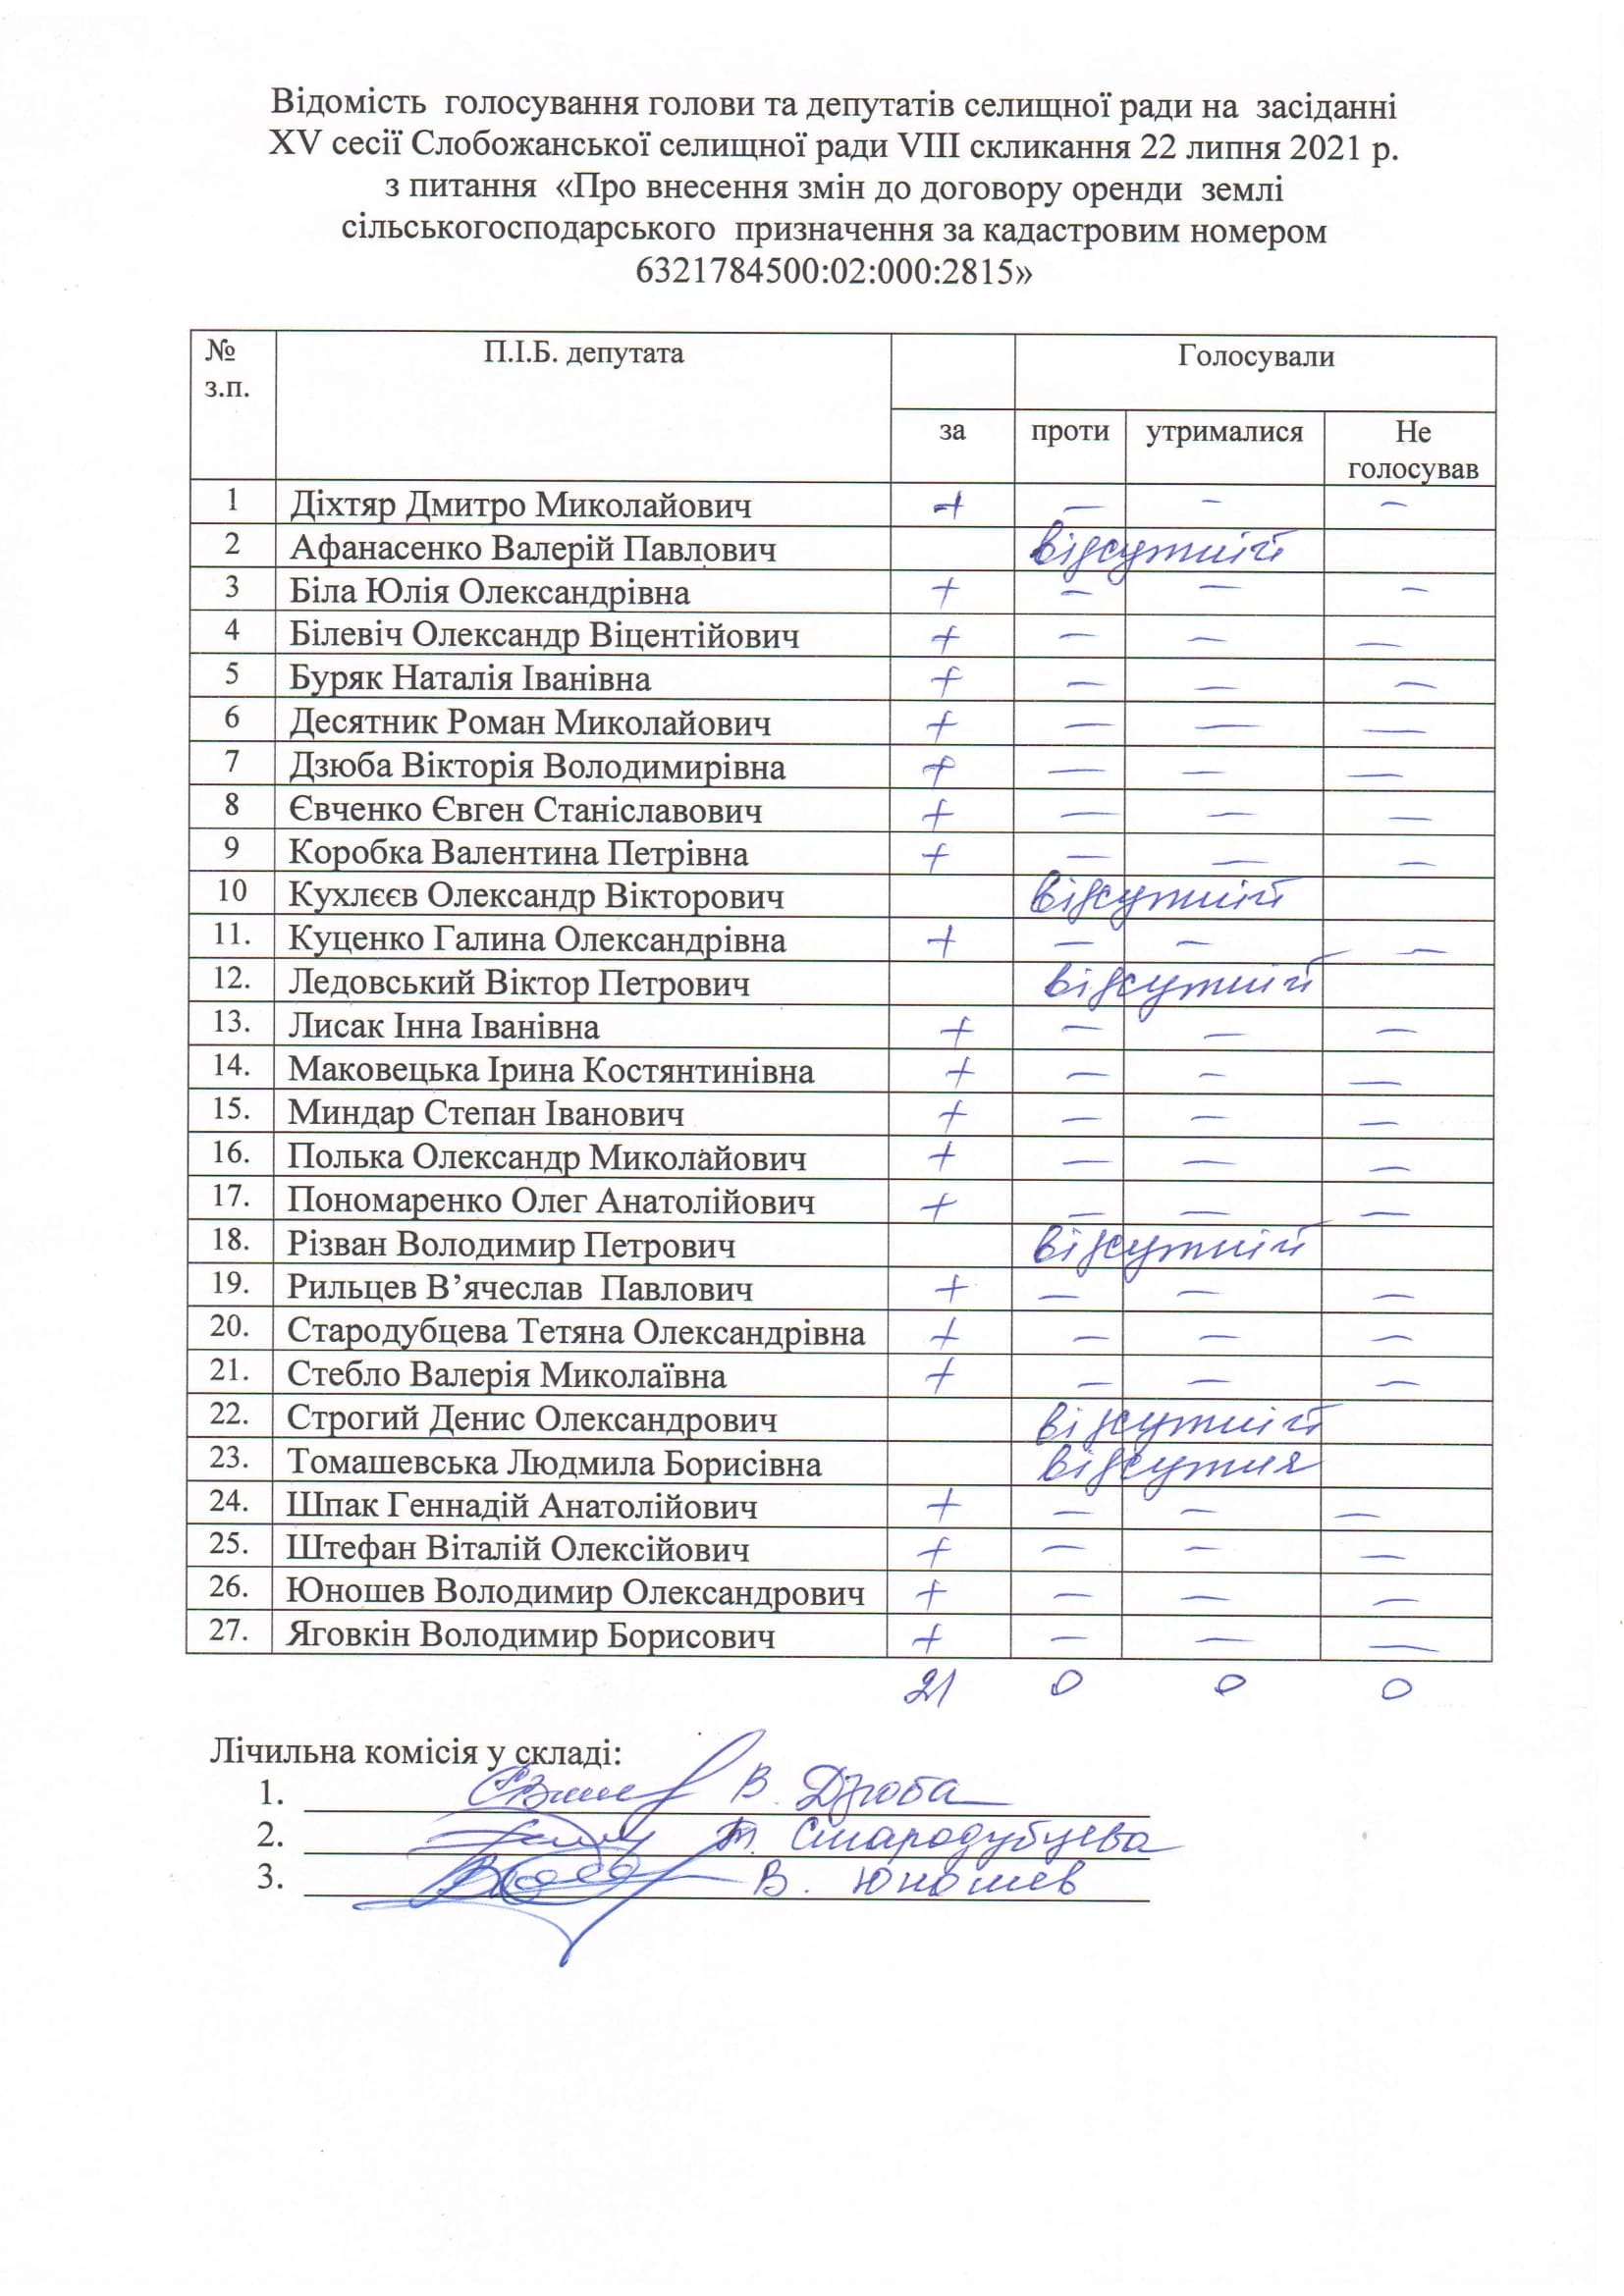 Відомість голосування голови та депутатів селищної ради на засіданні
XV сесії Слобожанської селищної ради VIII скликання 22 липня 2021 р.
з питання «Про внесення змін до договору оренди землі
сільськогосподарського призначення за кадастровим номером
6321784500:02:000:2815»
№ П.І.Б. депутата Голосували
з.п.
за проти утрималися Не
голосував
1 Діхтяр Дмитро Миколайович + — — —
2 Афанасенко Валерій Павлович відсутній
3 Біла Юлія Олександрівна + — — —
4 Білевіч Олександр Віцентійович + — — —
5 Буряк Наталія Іванівна + — — —
6 Десятник Роман Миколайович + — — —
7 Дзюба Вікторія Володимирівна + — — —
8 Євченко Євген Станіславович + — — —
9 Коробка Валентина Петрівна + — — —
10 Кухлєєв Олександр Вікторович відсутній
11. Куценко Галина Олександрівна + — — —
12. Ледовський Віктор Петрович відсутній
13. Лисак Інна Іванівна + — — —
14. Маковецька Ірина Костянтинівна + — — —
15. Миндар Степан Іванович + — — —
16. Полька Олександр Миколайович + — — —
17. Пономаренко Олег Анатолійович + — — —
18. Різван Володимир Петрович відсутній
19. Рильцев В’ячеслав Павлович + — — —
20. Стародубцева Тетяна Олександрівна + — — —
21. Стебло Валерія Миколаївна + — — —
22. Строгий Денис Олександрович відсутній
23. Томашевська Людмила Борисівна відсутня
24. Шпак Геннадій Анатолійович + — — —
25. Штефан Віталій Олексійович + — — —
26. Юношев Володимир Олександрович + — — —
27. Яговкін Володимир Борисович + — — —
21 0 0 0
Лічильна комісія у складі:
1. В. Дзюба
2. Т. Стародубцева
3. В. Юношев